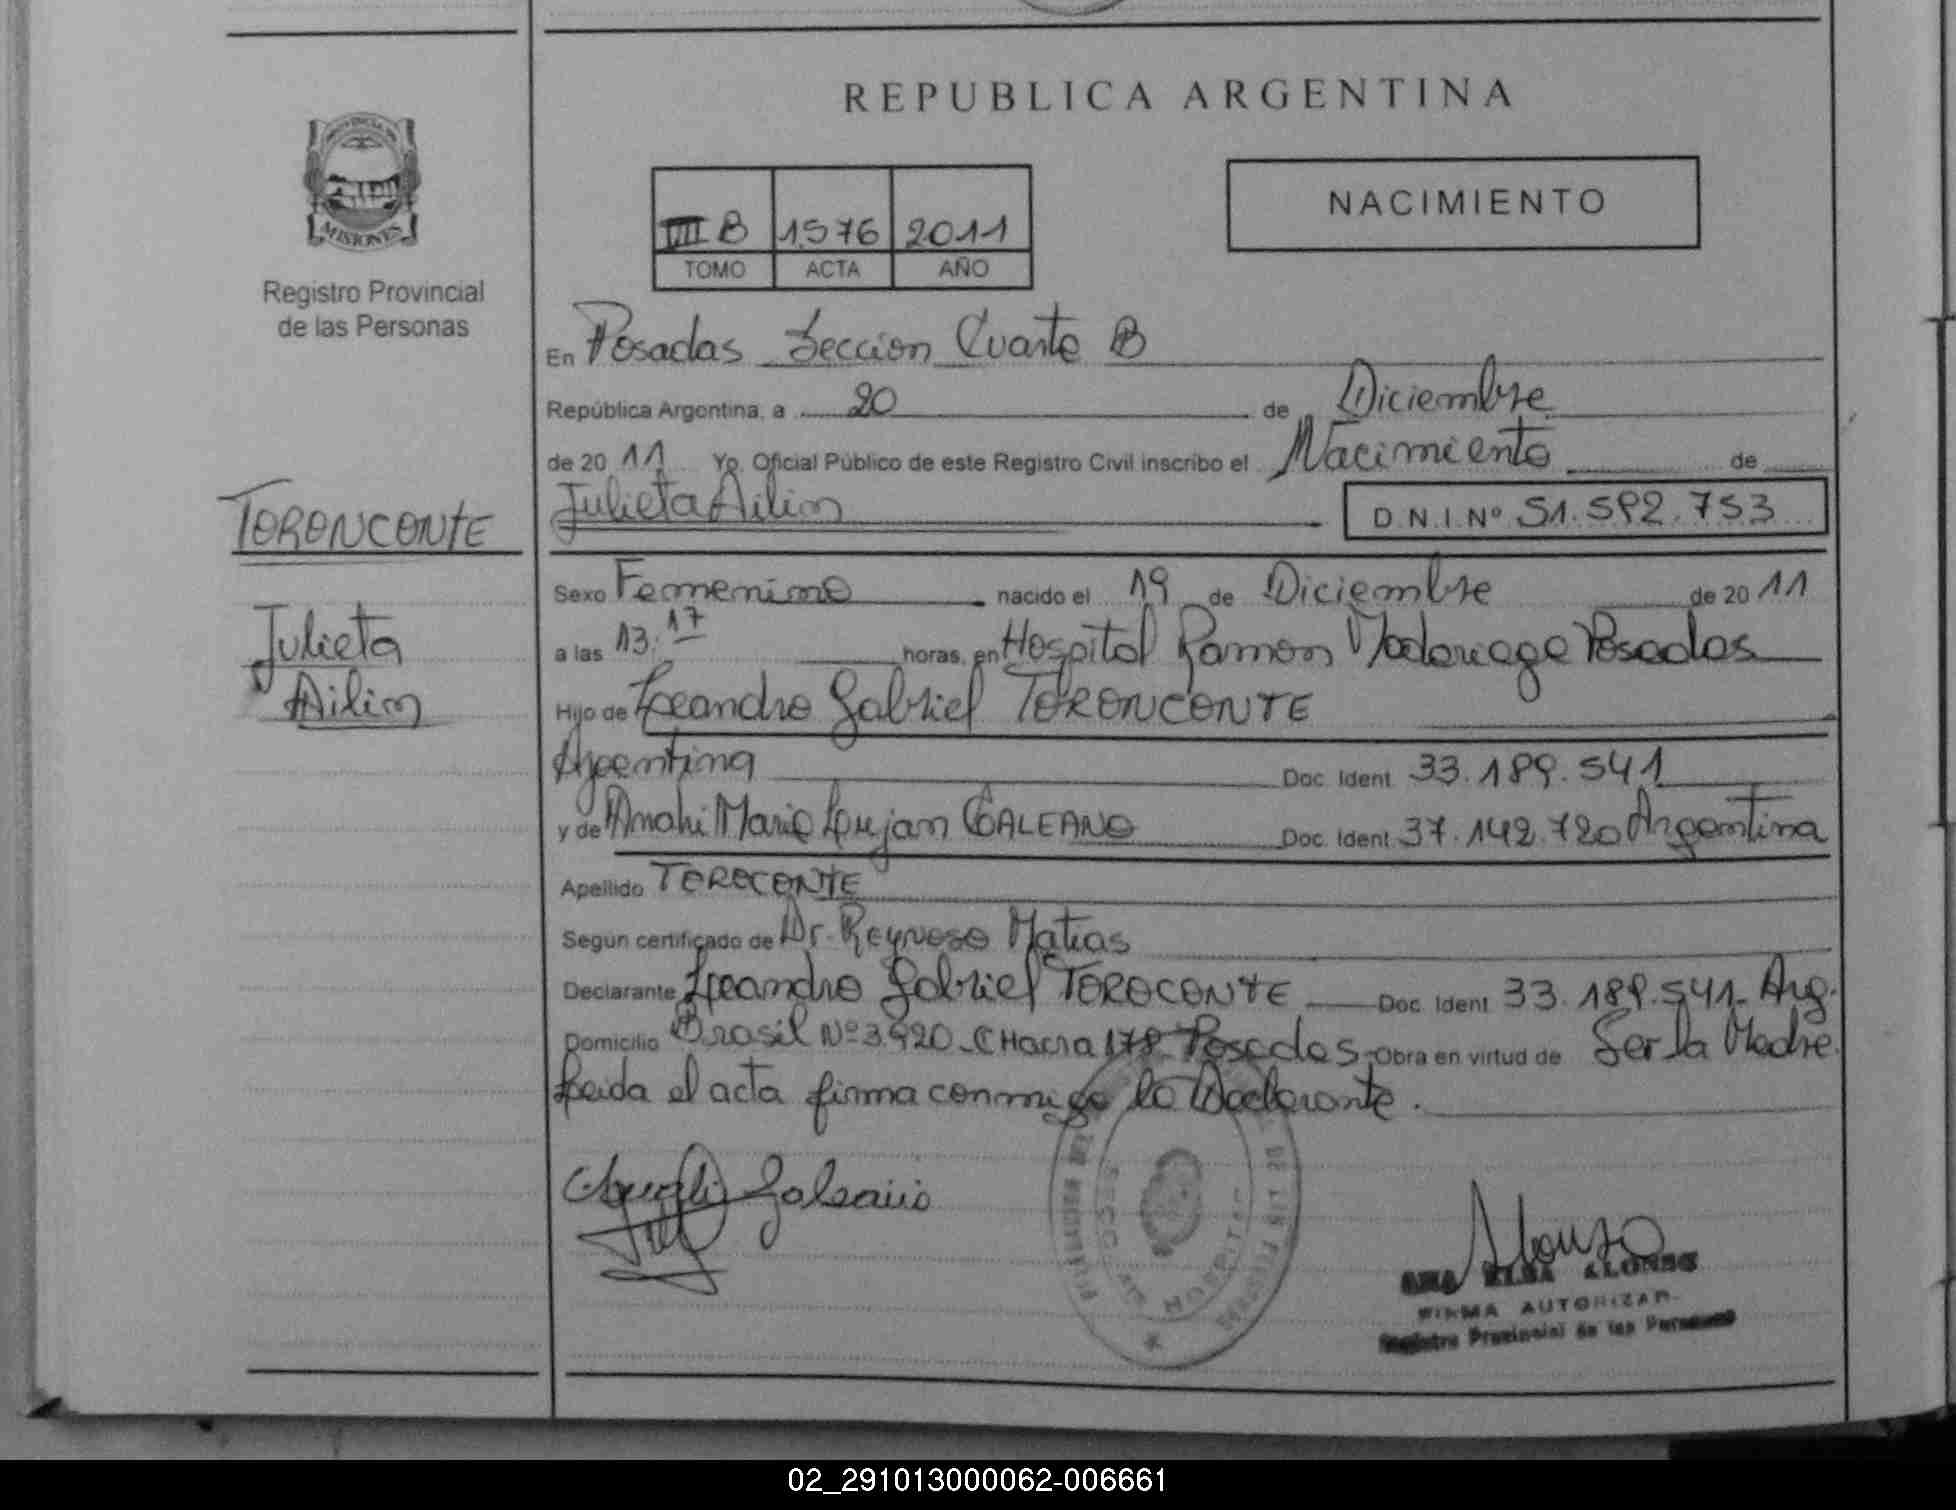 REPUBLICA ARGENTINA
PROVINCIA DE
MISIONES
Registro Provincial
de las Personas
NACIMIENTO
VIII B 1576 2011
TOMO ACTA AÑO
En Posadas Seccion Cuarta B
República Argentina, a 20 de Diciembre
de 20 11 Yo, Oficial Público de este Registro Civil inscribo el Nacimiento de
Julieta Ailin D.N.I.Nº 51.592.753
TORONCONTE
Julieta
Ailin
Sexo Femenino nacido el 19 de Diciembre de 20 11
a las 13.17 horas, en Hospital Ramon Madariaga Posadas
Hijo de Leandro Gabriel TORONCONTE
Argentina Doc. Ident. 33.189.541
y de Anahi Maria Lujan GALEANO Doc. Ident. 37.142.720 Argentina
Apellido TOROCONTE
Según certificado de Dr. Reynoso Matias
Declarante Leandro Gabriel TOROCONTE Doc. Ident. 33.189.541- Arg.
Domicilio Brasil Nº 3.920 - CHacra 178 - Posadas - Obra en virtud de Ser la Madre
Leida el acta firma conmigo la Declarante.
Galeano
Alonso
ELBA ALONSO
FIRMA AUTORIZAD.
Registro Provincial de las Personas
02_291013000062-006661